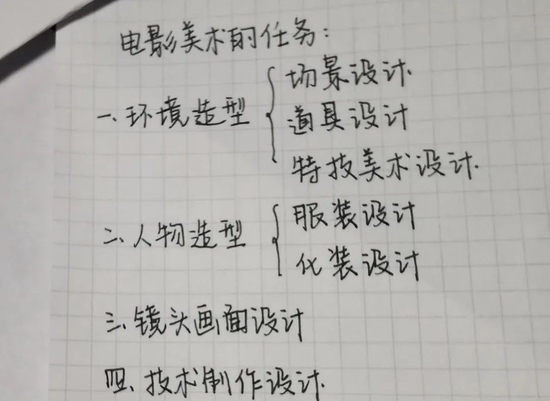 电影美术的任务:
一、环境造型
场景设计.
道具设计
特技美术设计.
二、人物造型
服装设计
化装设计
三、镜头画面设计
四、技术制作设计.